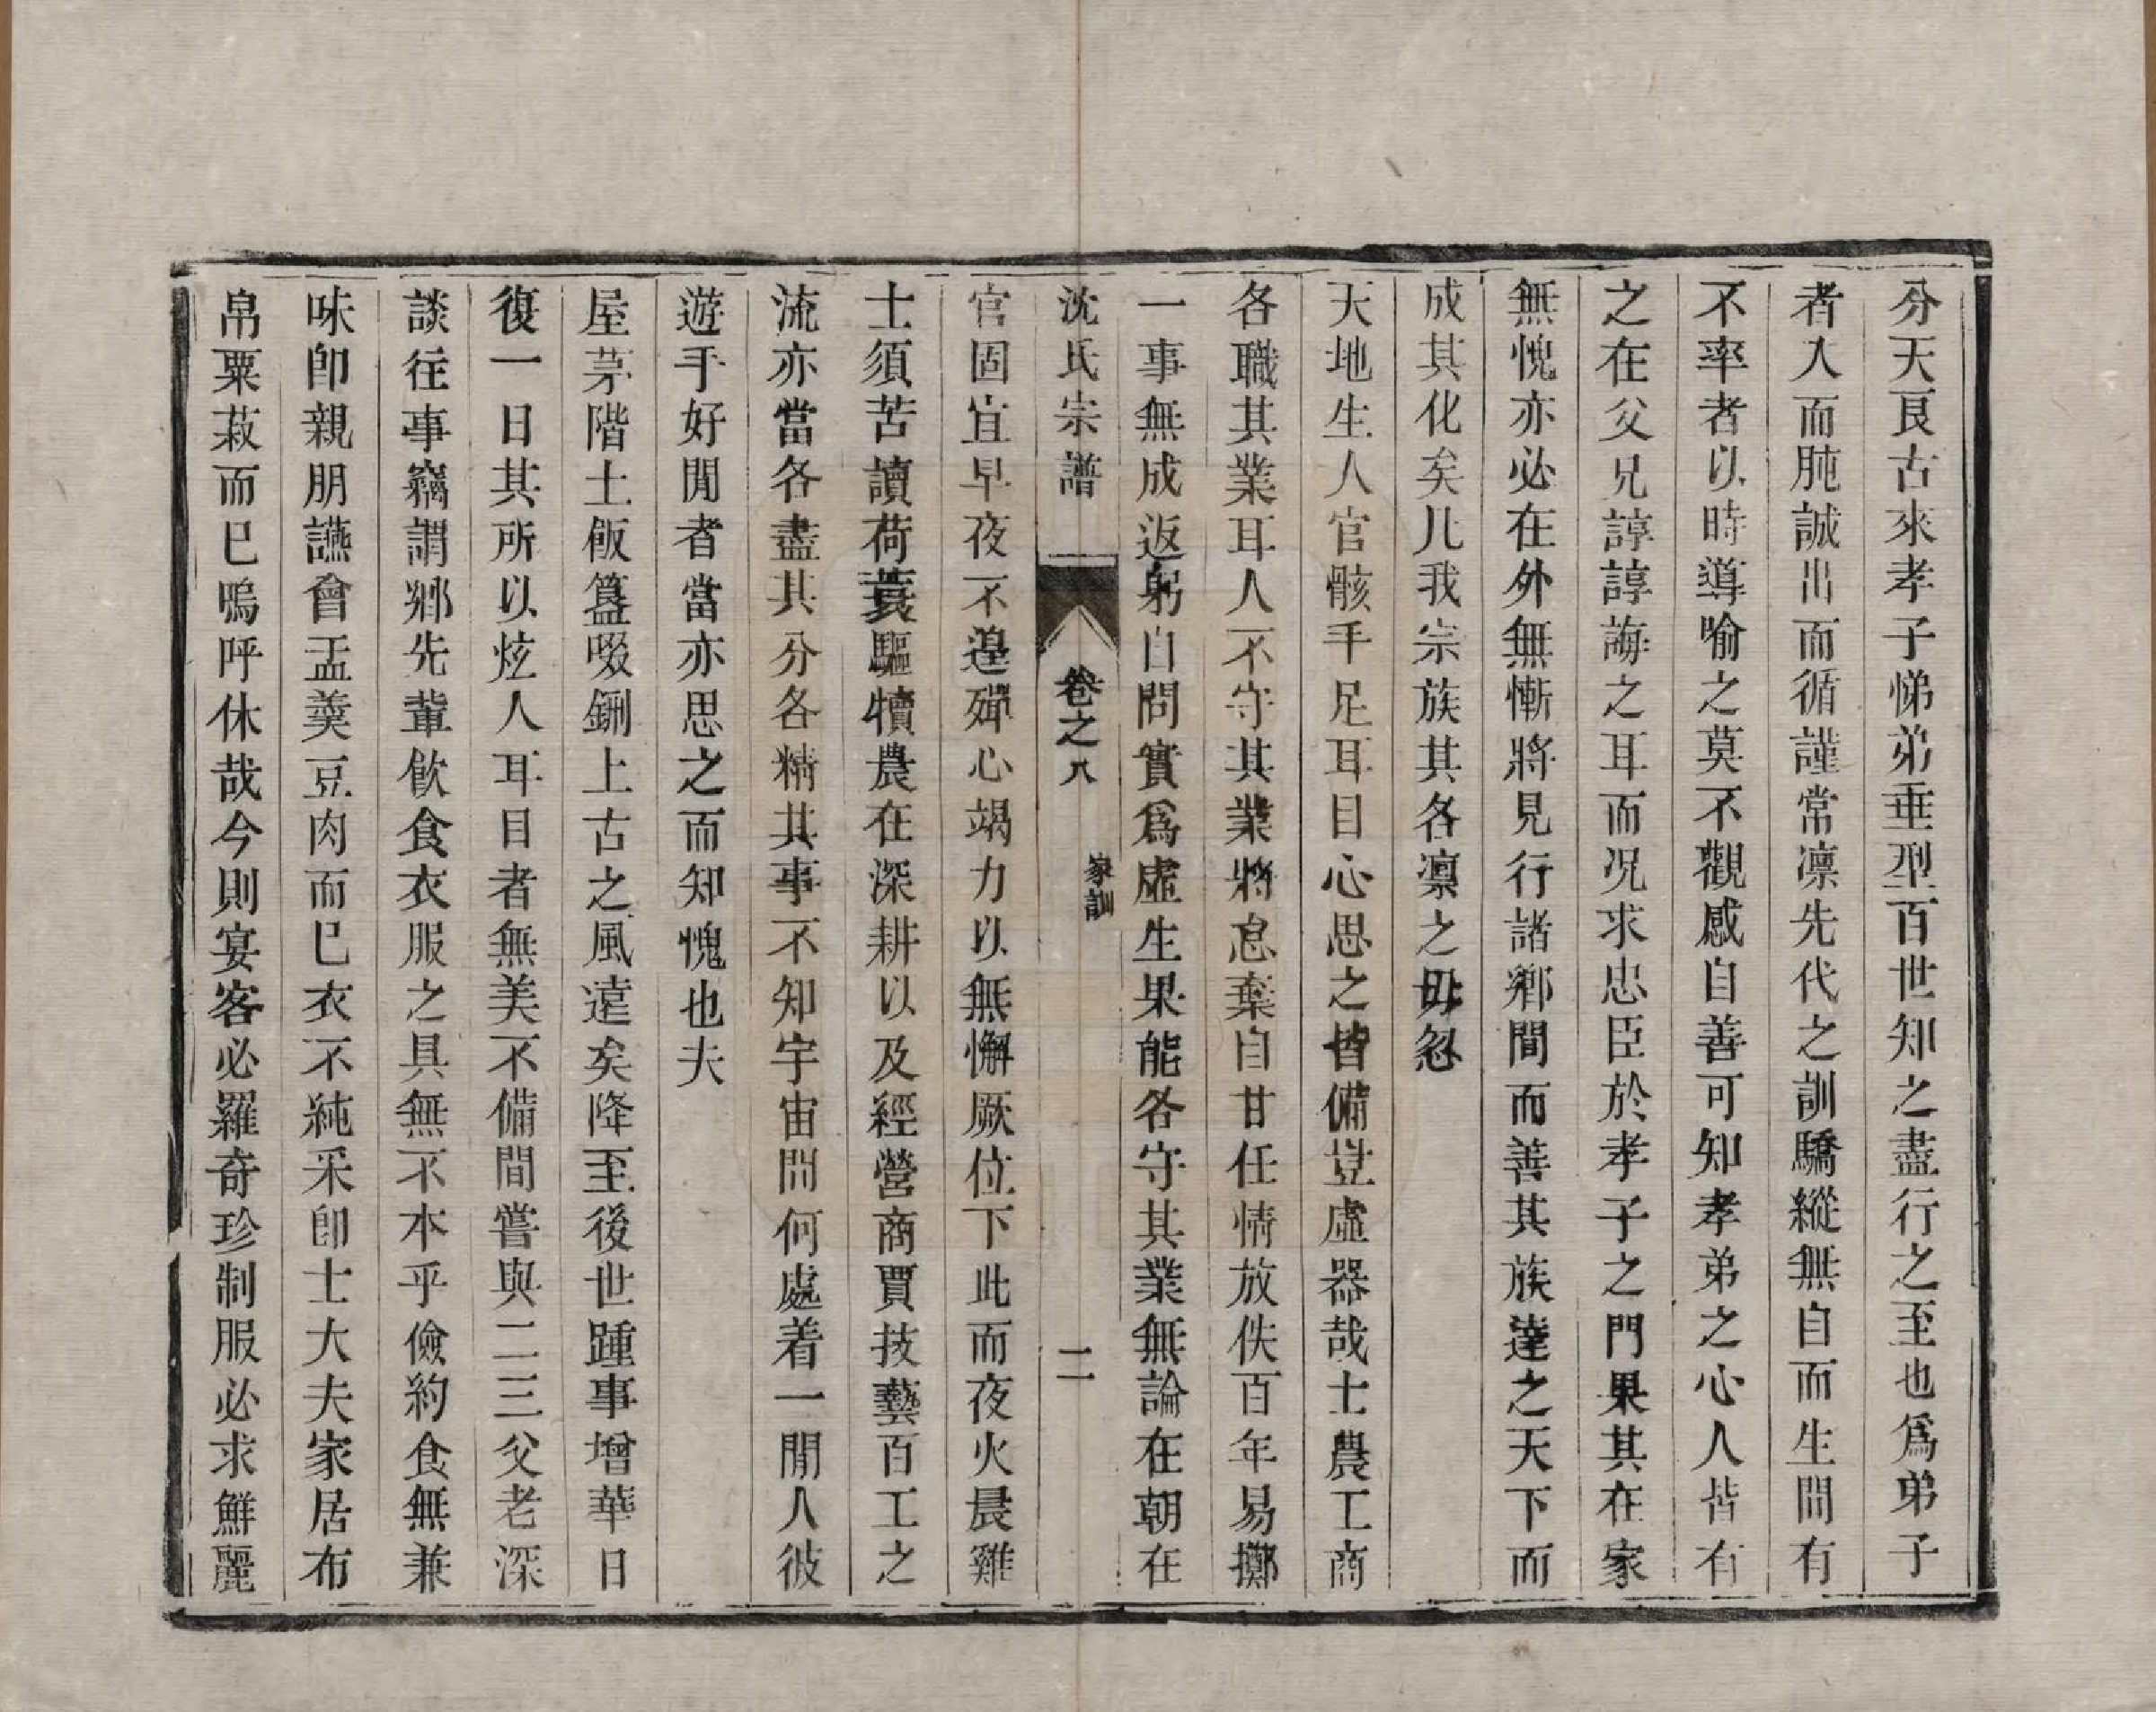 分天艮古來孝子悌弟垂型百世知之盡行之至也爲弟子
者入而肫誠出而循謹常凛先代之訓驕縱無自而生間有
不率者以時導喻之莫不觀感自善可知孝弟之心人皆有
之在父兄諄諄誨之耳而况求忠臣於孝子之門果其在家
無愧亦必在外無慚將見行諸鄉間而善其族達之天下而
成其化矣凡我宗族其各凛之毋忽
天地生人官骸手足耳目心思之皆備豈虛器哉士農工商
各職其業耳人不守其業將怠棄自甘任情放佚百年易擲
一事無成返躬自問實爲虛生果能各守其業無論在朝在
沈氏宗譜
卷之八
家訓
二
官固宜早夜不遑殫心竭力以無懈厥位下此而夜火晨雞
士須苦讀荷蓑驅犢農在深耕以及經營商賈技藝百工之
流亦當各盡其分各精其事不知宇宙間何處着一閒人彼
遊手好閒者當亦思之而知愧也夫
屋茅階土飯簋啜鉶上古之風遠矣降至後世踵事增華日
復一日其所以炫人耳目者無美不備間嘗與二三父老深
談往事竊謂鄉先輩飮食衣服之具無不本乎儉約食無兼
味卽親朋讌會盂羮豆肉而已衣不純采卽士大夫家居布
帛粟菽而已嗚呼休哉今則宴客必羅奇珍制服必求鮮麗